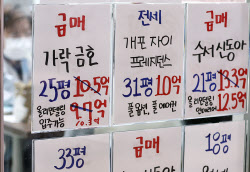 급매
가락 금호
25평 10.5억
올리모델링
입주가능
전세
개포 자이
프레지던스
31평 10억
풀옵션, 풀에어컨
급매
수서 신동아
21평 13.3억
올리모델링
12.5억
33평
급매
18평